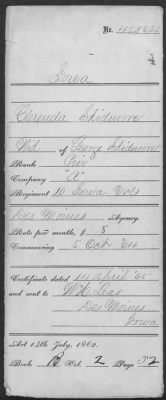 No. 45.
Iowa
Clarinda Skidmore
Wid. of George Skidmore
Rank Priv
Company "A"
Regiment 10 Iowa Vols
Des Moines Agency.
Rate per month, $ 8
Commencing 5 Oct '64
Certificate dated 14 April '65
and sent to W. H. Leas
Des Moines
Iowa
Act 14th July, 1862.
Book B Vol. 2 Page 52